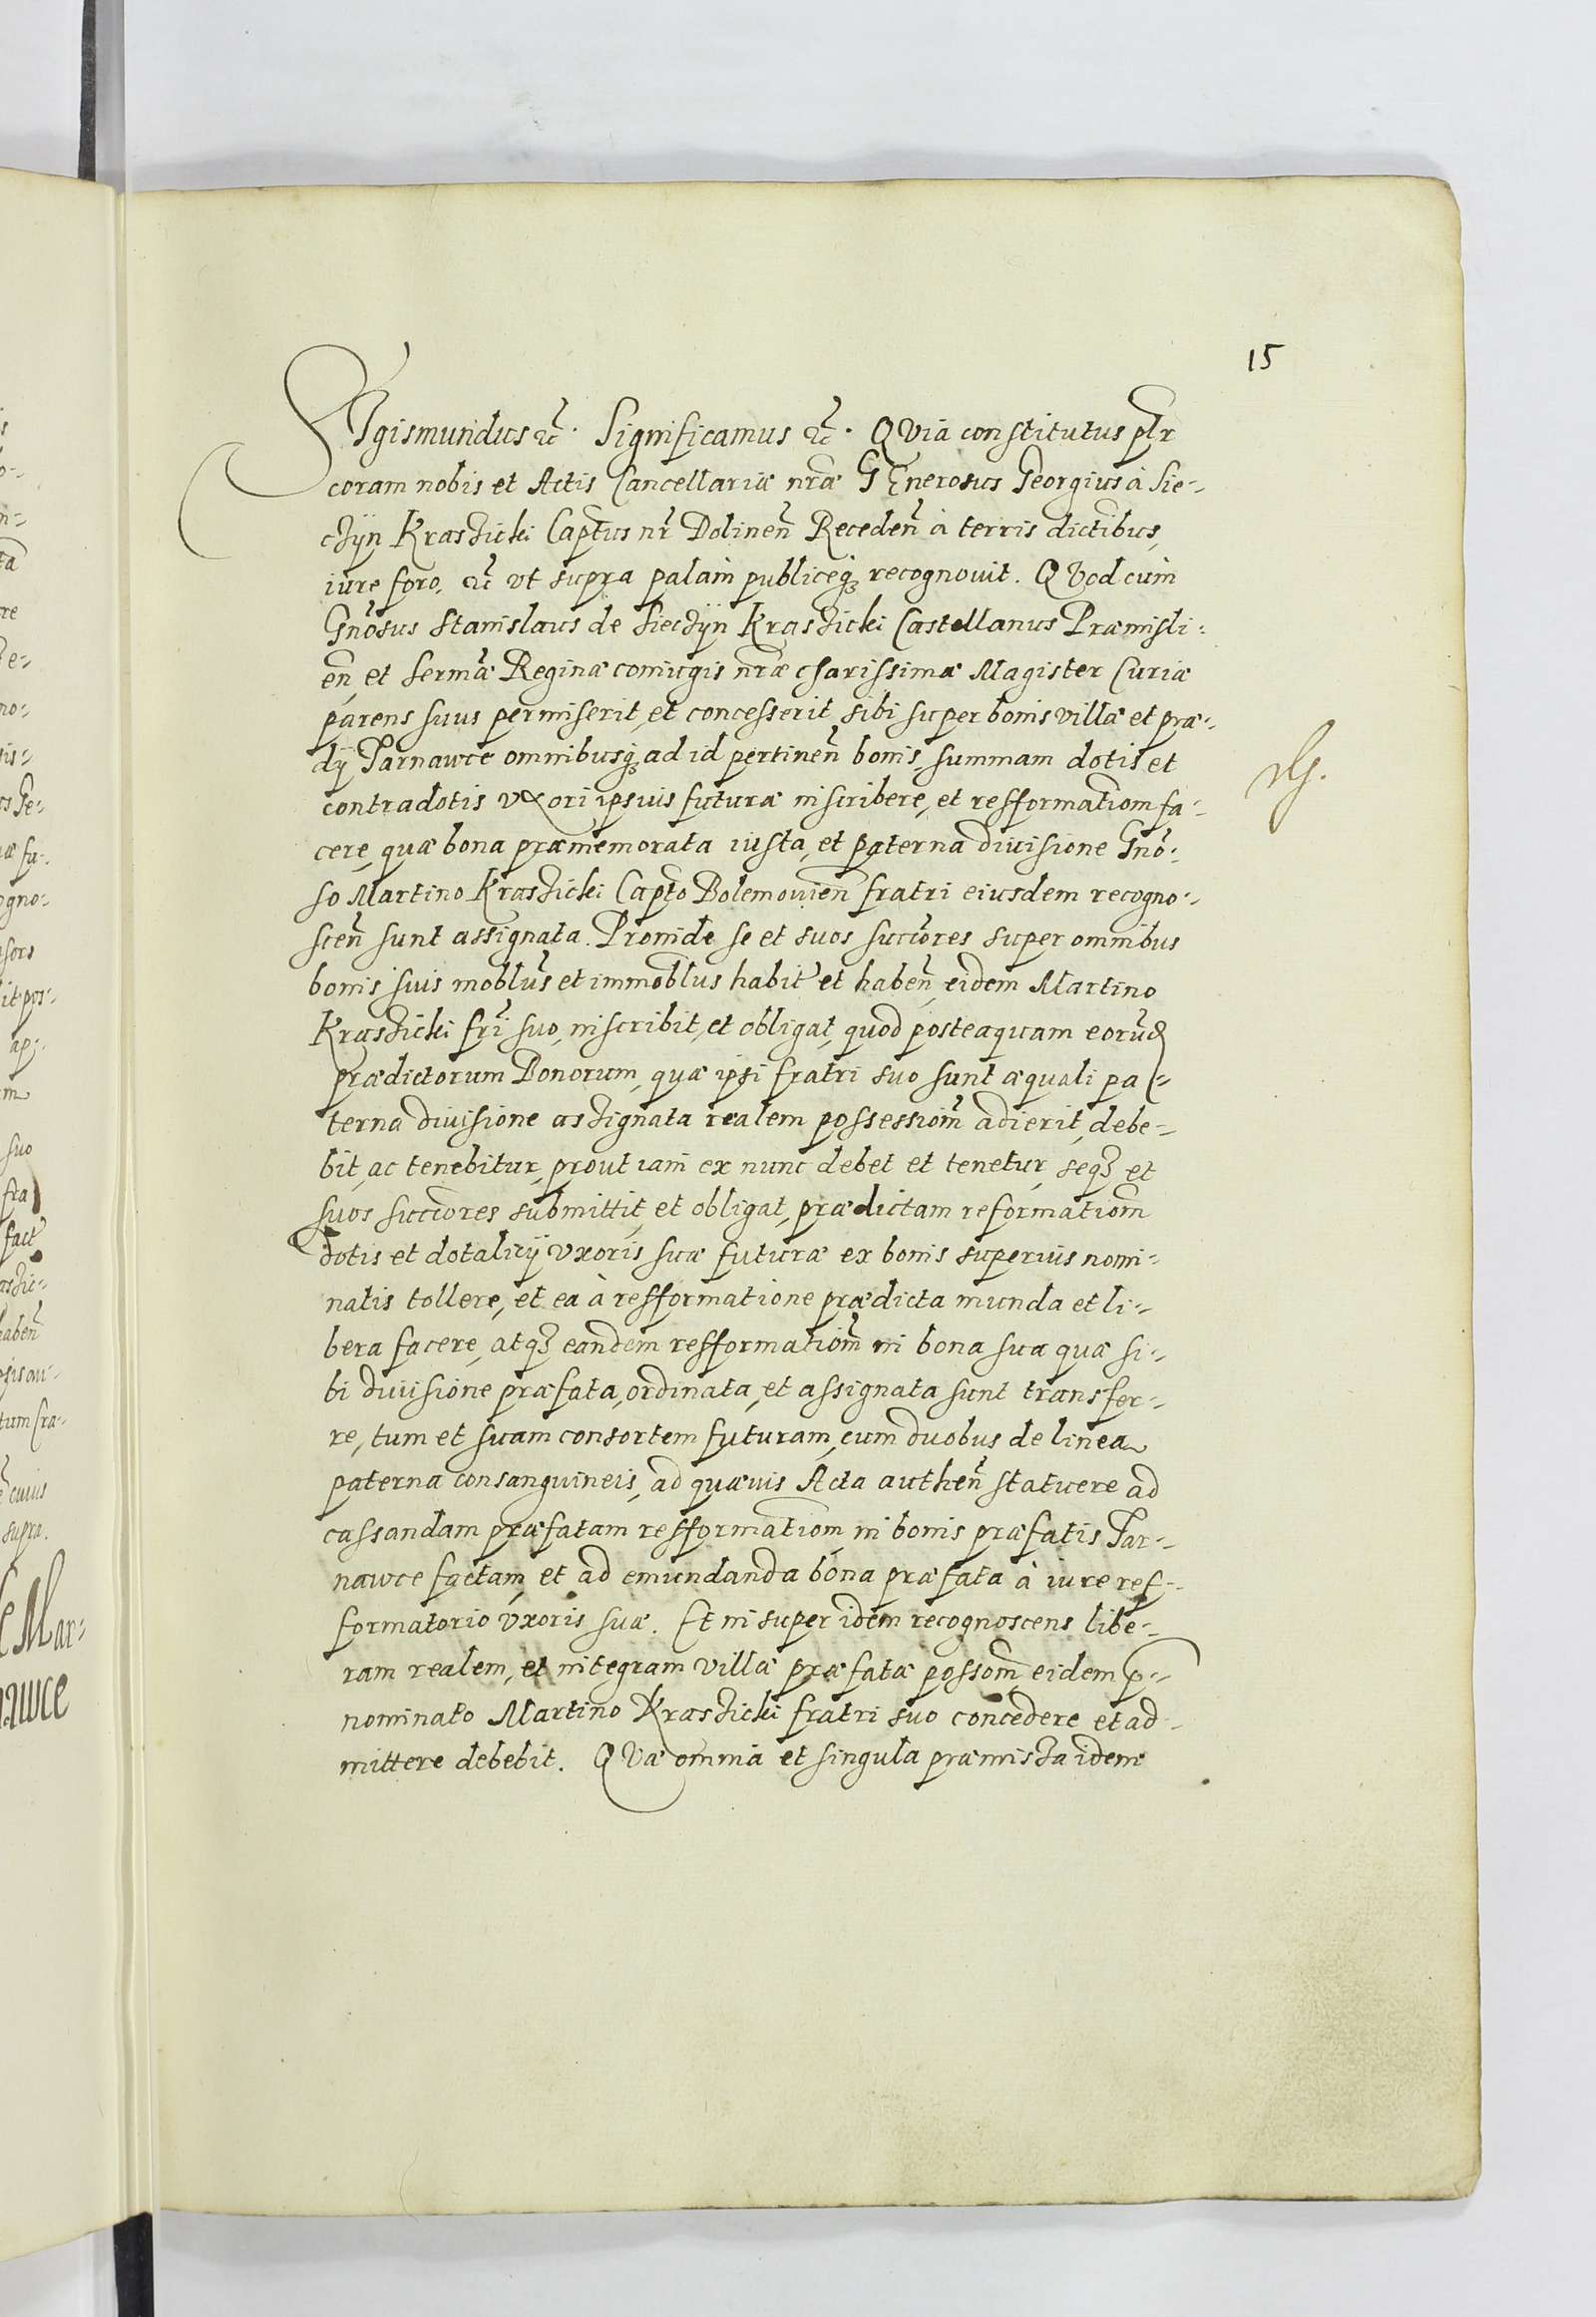 15
SIgismundus etc. Significamus etc. QVia constitutus plr
coram nobis et Actis Cancellariæ nræ GEnerosus Georgius à Sie-
czÿn Kraszicki Captus nr Dolinen Receden à terris dictibus,
iure foro, etc ut supra palam publiceq; recognouit. QVod cum
Gnosus Stanislaus de Sieczÿn Kraszicki Castellanus Præmisli:
en, et Sermæ Reginæ coniugis nræ charissimæ Magister Curiæ
parens suus permiserit, et concesserit sibi super bonis villæ et præ-
dÿ Tarnawce omnibusq; ad id pertinen bonis, summam dotis et
contradotis uxori ipsius futuræ inscribere, et refformatiom fa-
cere, quæ bona præmemorata iusta, et paterna diuisione Gno:
so Martino Kraszicki Capto Bolemouien fratri eiusdem recogno-
scen sunt assignata. Proinde se et suos succores super omnibus
bonis suis moblus et immoblus habit et haben, eidem Martino
Kraszicki fri suo, inscribit, et obligat, quod posteaquam eorund
prædictorum Bonorum, quæ ipsi fratri suo sunt æquali pa-
terna diuisione aszignata realem possessiom adierit, debe-
bit, ac tenebitur, prout iam ex nunc debet et tenetur, seq; et
suos succores submittit, et obligat, prædictam reformatiom
dotis et dotalicÿ uxoris suæ futuræ ex bonis superius nomi-
natis tollere, et ea à refformatione prædicta munda et li-
bera facere, atq; eandem refformatiom in bona sua quæ si-
bi diuisione præfata, ordinata, et assignata sunt transfer-
re, tum et suam consortem futuram, cum duobus de linea
paterna consanguineis, ad quæuis Acta authen statuere ad
cassandam præfatam refformatiom in bonis præfatis Tar-
nawce factam, et ad emundanda bona præfata à iure ref-
formatorio uxoris suæ. Et insuper idem recognoscens libe-
ram realem, et integram villæ præfatæ possom eidem p-
nominato Martino Kraszicki fratri suo concedere et ad-
mittere debebit. QVæ omnia et singula præmiszta idem